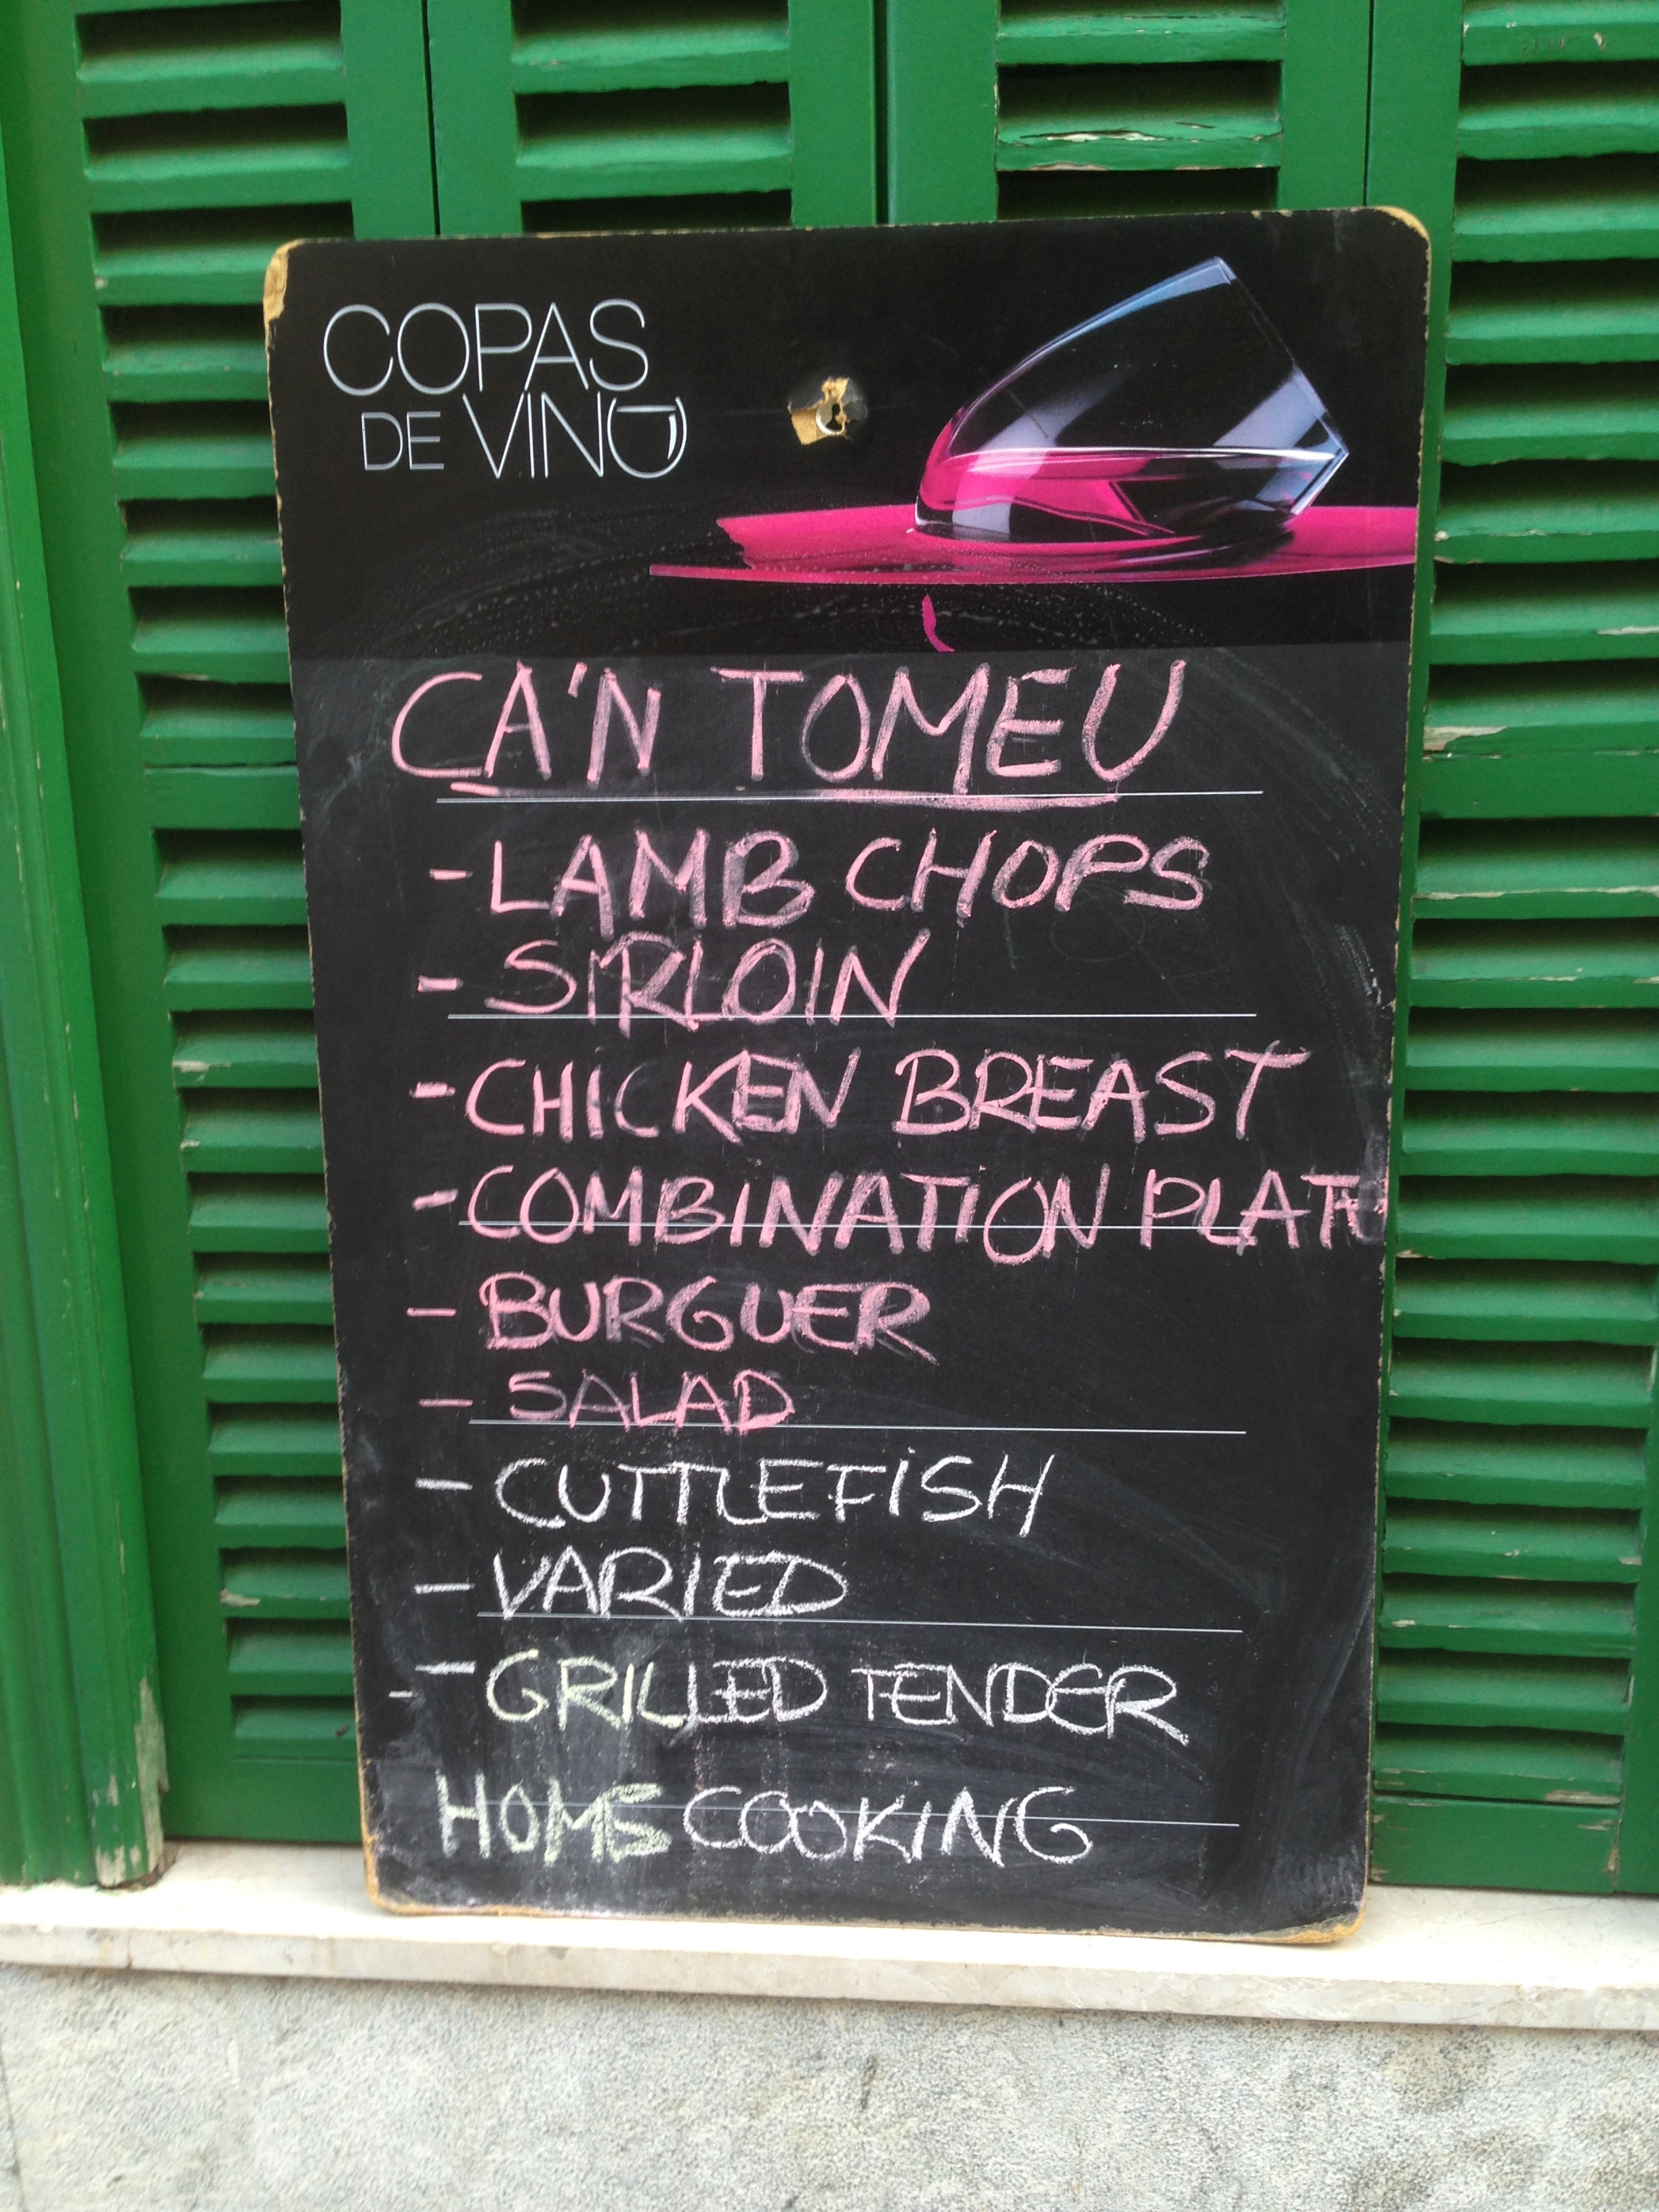 COPAS
DE VINO
CA'N TOMEU
- LAMB CHOPS
- SIRLOIN
- CHICKEN BREAST
- COMBINATION PLATE
- BURGUER
- SALAD
- CUTTLEFISH
- VARIED
- GRILLED TENDER
HOME COOKING